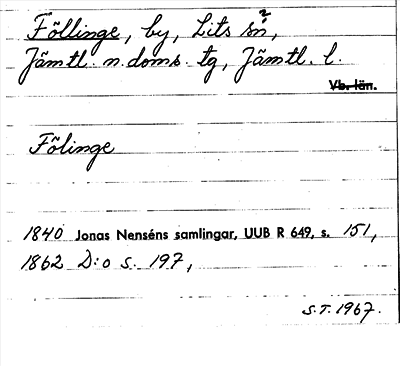 Föllinge, by, Lits sn?,
Jämtl. n. doms. tg, Jämtl. l.
Vb. län.
Fölinge
1840 Jonas Nenséns samlingar, UUB R 649, s. 151,
1862 D:o s. 197,
S.T. 1967.